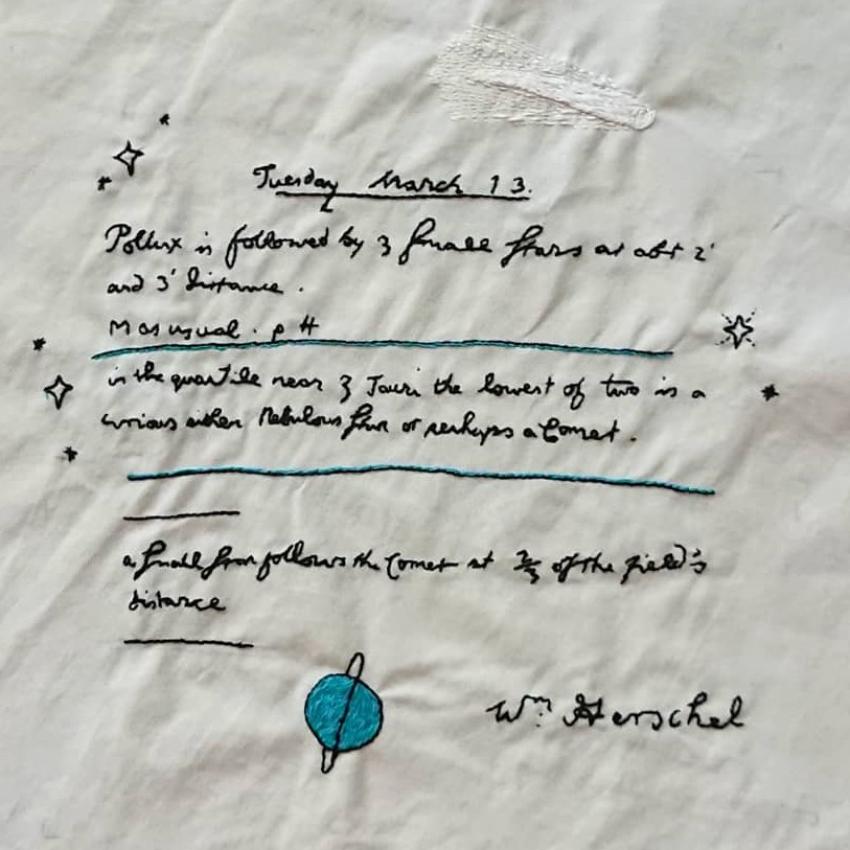 Tuesday March 13.
Pollux is followed by 3 small stars at abt 2'
and 3' distance.
M as usual. p H
in the quartile near ζ Tauri the lowest of two is a
curious either Nebulous star or perhaps a Comet.
a small star follows the Comet at 2/3 of the field's
distance
Wm. Herschel